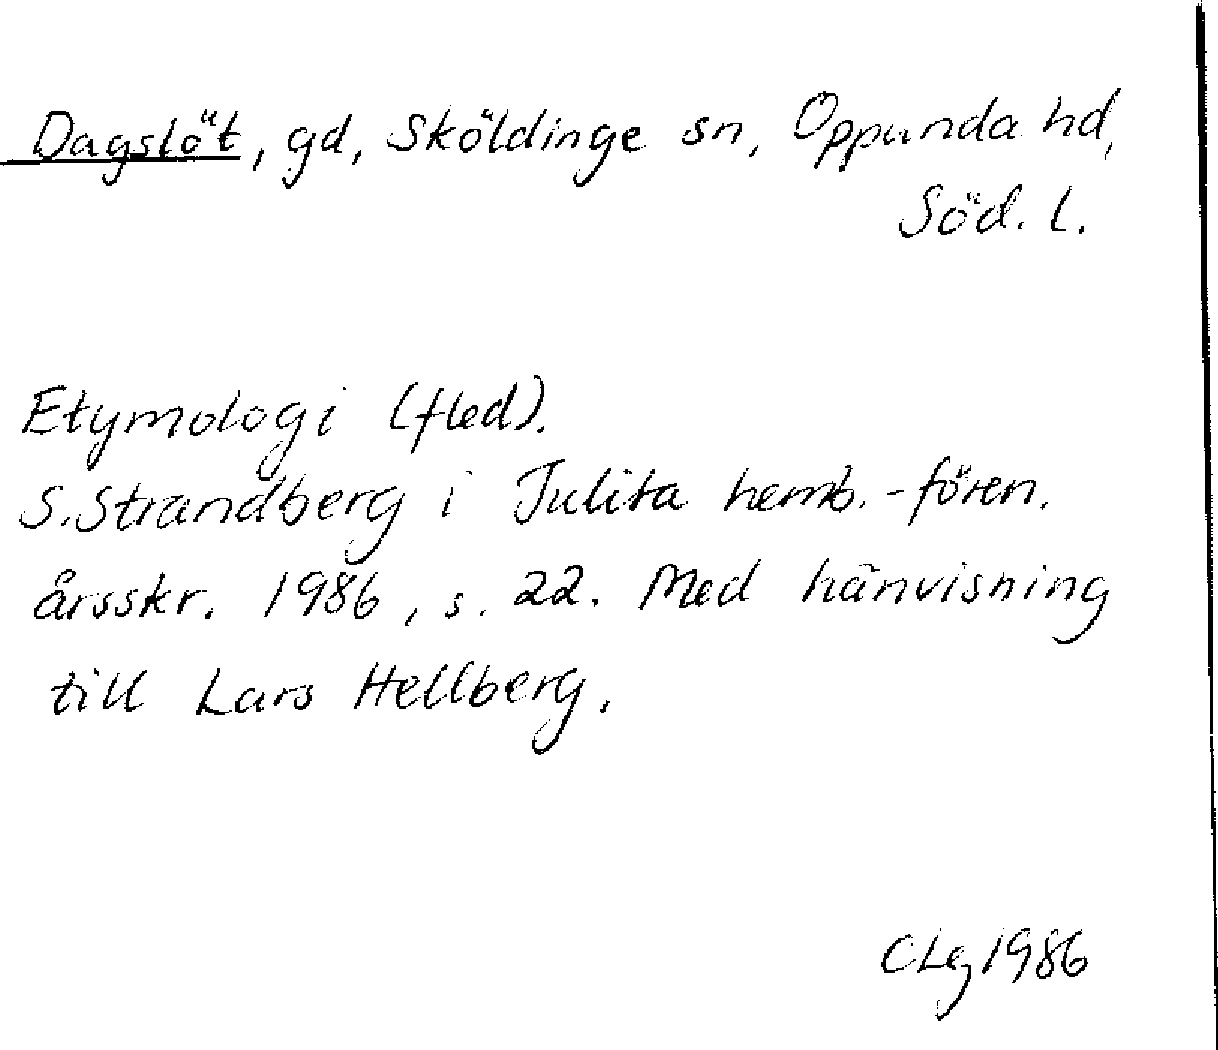 Dagslöt, gd, Sköldinge sn, Oppunda hd,
Söd. l.
Etymologi (fled).
S. Strandberg i Julita hemb.-fören.
årsskr. 1986, s. 22. Med hänvisning
till Lars Hellberg.
CLg 1986